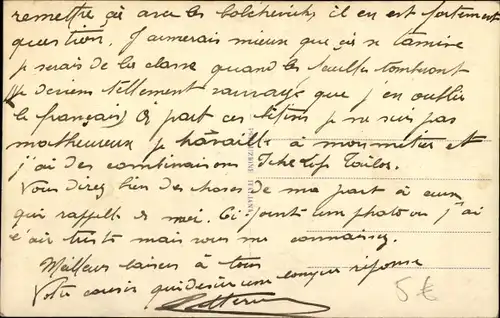 remettre ça avec les bolcheviks il en est fortement
question. J'aimerais mieux que ça se termine
je serais de la classe quand les feuilles tomberont
(je deviens tellement sauvage que j'en oublie
le français) A part ces bêtises je ne suis pas
malheureux je travaille à mon métier et
j'ai des combinaisons
Vous direz bien des choses de ma part à ceux
qui rappelle de moi. Ci joint une photo ou j'ai
l'air triste mais vous me connaissez.
Meilleurs baisers à tous
Votre cousin qui désire une longue réponse
5€